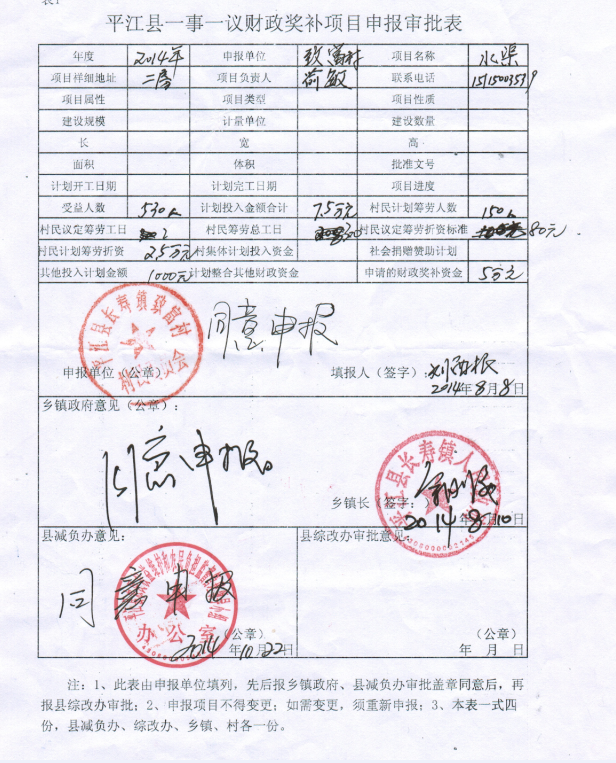 表1
平江县一事一议财政奖补项目申报审批表
年度 2014年 申报单位 致富村 项目名称 水渠
项目详细地址 二房 项目负责人 敏 联系电话
项目属性 项目类型 项目性质
建设规模 计量单位 建设数量
长 宽 高
面积 体积 批准文号
计划开工日期 计划完工日期 项目进度
受益人数 530人 计划投入金额合计 7.5万元 村民计划筹劳人数 150人
村民议定筹劳工日 2 村民筹劳总工日 300 村民议定筹劳折资标准 80元
村民计划筹劳折资 2.5万元 村集体计划投入资金 社会捐赠赞助计划
其他投入计划金额 1000元 计划整合其他财政资金 申请的财政奖补资金 5万元
平江县长寿镇致富村
村民委员会
同意申报
申报单位（公章） 填报人（签字）：
2014年8月8日
乡镇政府意见（公章）：
同意申报。
平江县长寿镇人
乡镇长（签字：
2014年8月10日
县减负办意见： 县综改办审批意见
同意申报
办公室
（公章） （公章）
2014年10月22日 年 月 日
注：1、此表由申报单位填列，先后报乡镇政府、县减负办审批盖章同意后，再
报县综改办审批；2、申报项目不得变更；如需变更，须重新申报；3、本表一式四
份，县减负办、综改办、乡镇、村各一份。